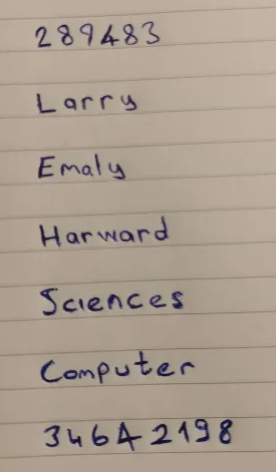 289483
Larry
Emaly
Harward
Sciences
Computer
346A2198